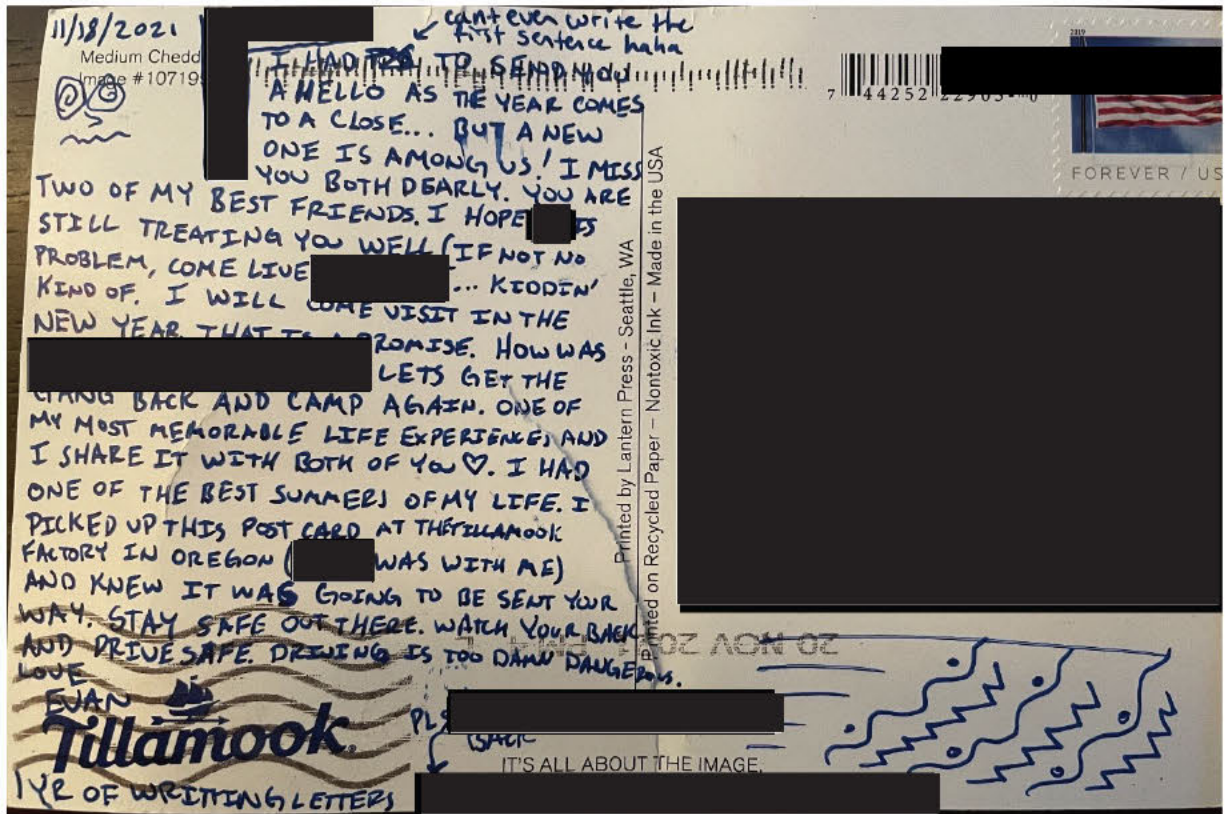 11/18/2021
cant even write the
first sentence haha
Medium Chedd
Image #10719
I HAD TO SEND YOU
A HELLO AS THE YEAR COMES
TO A CLOSE... BUT A NEW
ONE IS AMONG US! I MISS
YOU BOTH DEARLY. YOU ARE
TWO OF MY BEST FRIENDS. I HOPE IS
STILL TREATING YOU WELL (IF NOT NO
PROBLEM, COME LIVE ... KIDDIN'
KIND OF. I WILL COME VISIT IN THE
NEW YEAR THAT IS A PROMISE. HOW WAS
LETS GET THE
GANG BACK AND CAMP AGAIN. ONE OF
MY MOST MEMORABLE LIFE EXPERIENCES AND
I SHARE IT WITH BOTH OF YOU ♡. I HAD
ONE OF THE BEST SUMMERS OF MY LIFE. I
PICKED UP THIS POST CARD AT THE TILLAMOOK
FACTORY IN OREGON ( WAS WITH ME)
AND KNEW IT WAS GOING TO BE SENT YOUR
WAY. STAY SAFE OUT THERE. WATCH YOUR BACK
AND DRIVE SAFE. DRIVING IS TOO DAMN DANGEROUS.
LOVE
EVAN
Tillamook
PLS
BACK
IT'S ALL ABOUT THE IMAGE.
1 YR OF WRITTING LETTERS
Printed by Lantern Press – Seattle, WA
Printed on Recycled Paper – Nontoxic Ink – Made in the USA
7 44252
2019
FOREVER / US
20 NOV